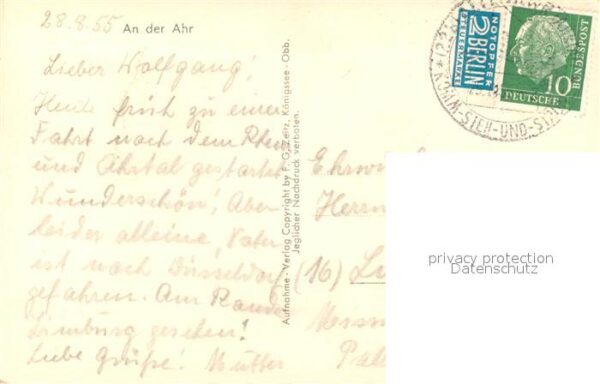 28.8.55 An der Ahr
Lieber Wolfgang!
Heute früh zu einer
Fahrt nach dem Rhein
und Ahrtal gestartet
Wunderschön! Aber
leider alleine, Vater
ist nach Düsseldorf
gefahren. Am Rande
Limburg gesehen!
Liebe Grüße! Mutter
Aufnahme - Verlag Copyright by F. G. Zeitz, Königssee - Obb.
Jeglicher Nachdruck verboten.
NOTOPFER
2 BERLIN
STEUERMARKE
DEUTSCHE
BUNDESPOST
10
Herrn
(16)
privacy protection
Datenschutz